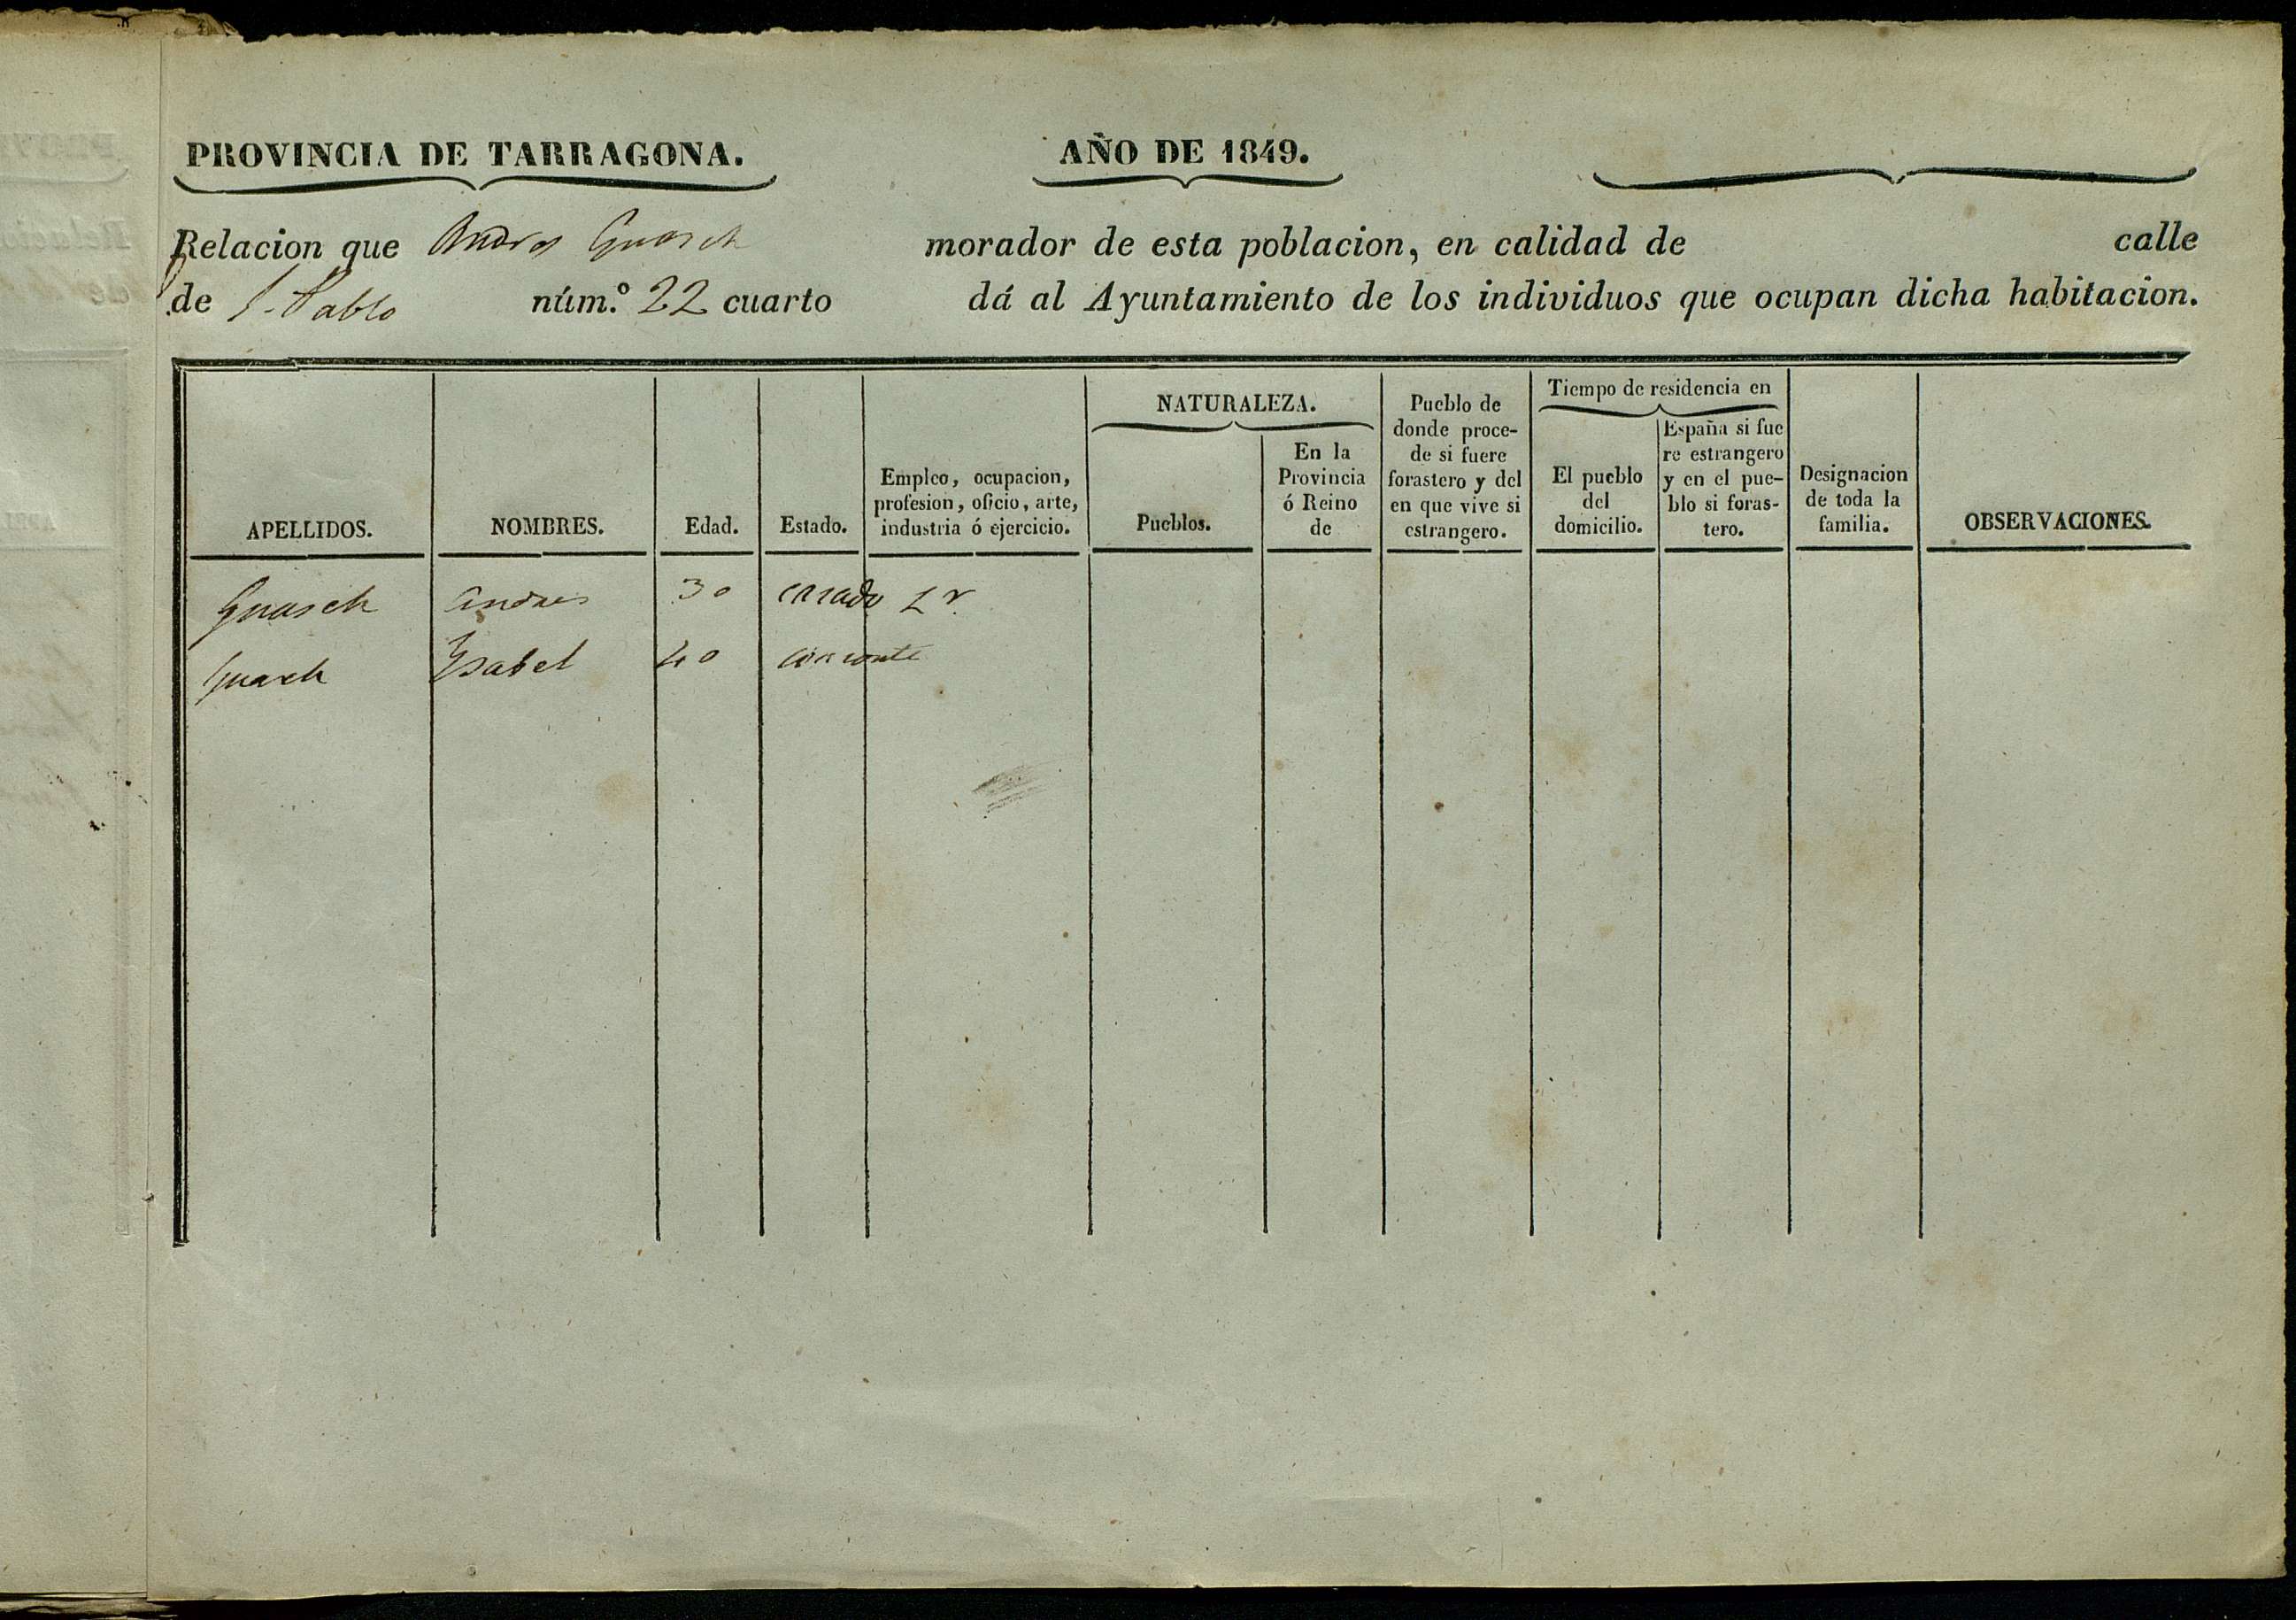 PROVINCIA DE TARRAGONA. AÑO DE 1849.
Relacion que Andres Guasch morador de esta poblacion, en calidad de calle
de S. Pablo núm.º 22 cuarto dá al Ayuntamiento de los individuos que ocupan dicha habitacion.
APELLIDOS.
NOMBRES.
Edad.
Estado.
Empleo, ocupacion,
profesion, oficio, arte,
industria ó ejercicio.
NATURALEZA.
Pueblos.
En la
Provincia
ó Reino
de
Pueblo de
donde proce-
de si fuere
forastero y del
en que vive si
estrangero.
Tiempo de residencia en
El pueblo
del
domicilio.
España si fue
re estrangero
y en el pue-
blo si foras-
tero.
Designacion
de toda la
familia.
OBSERVACIONES.
Guasch Andres 30 casado Lr.
Guasch Ysabel 40